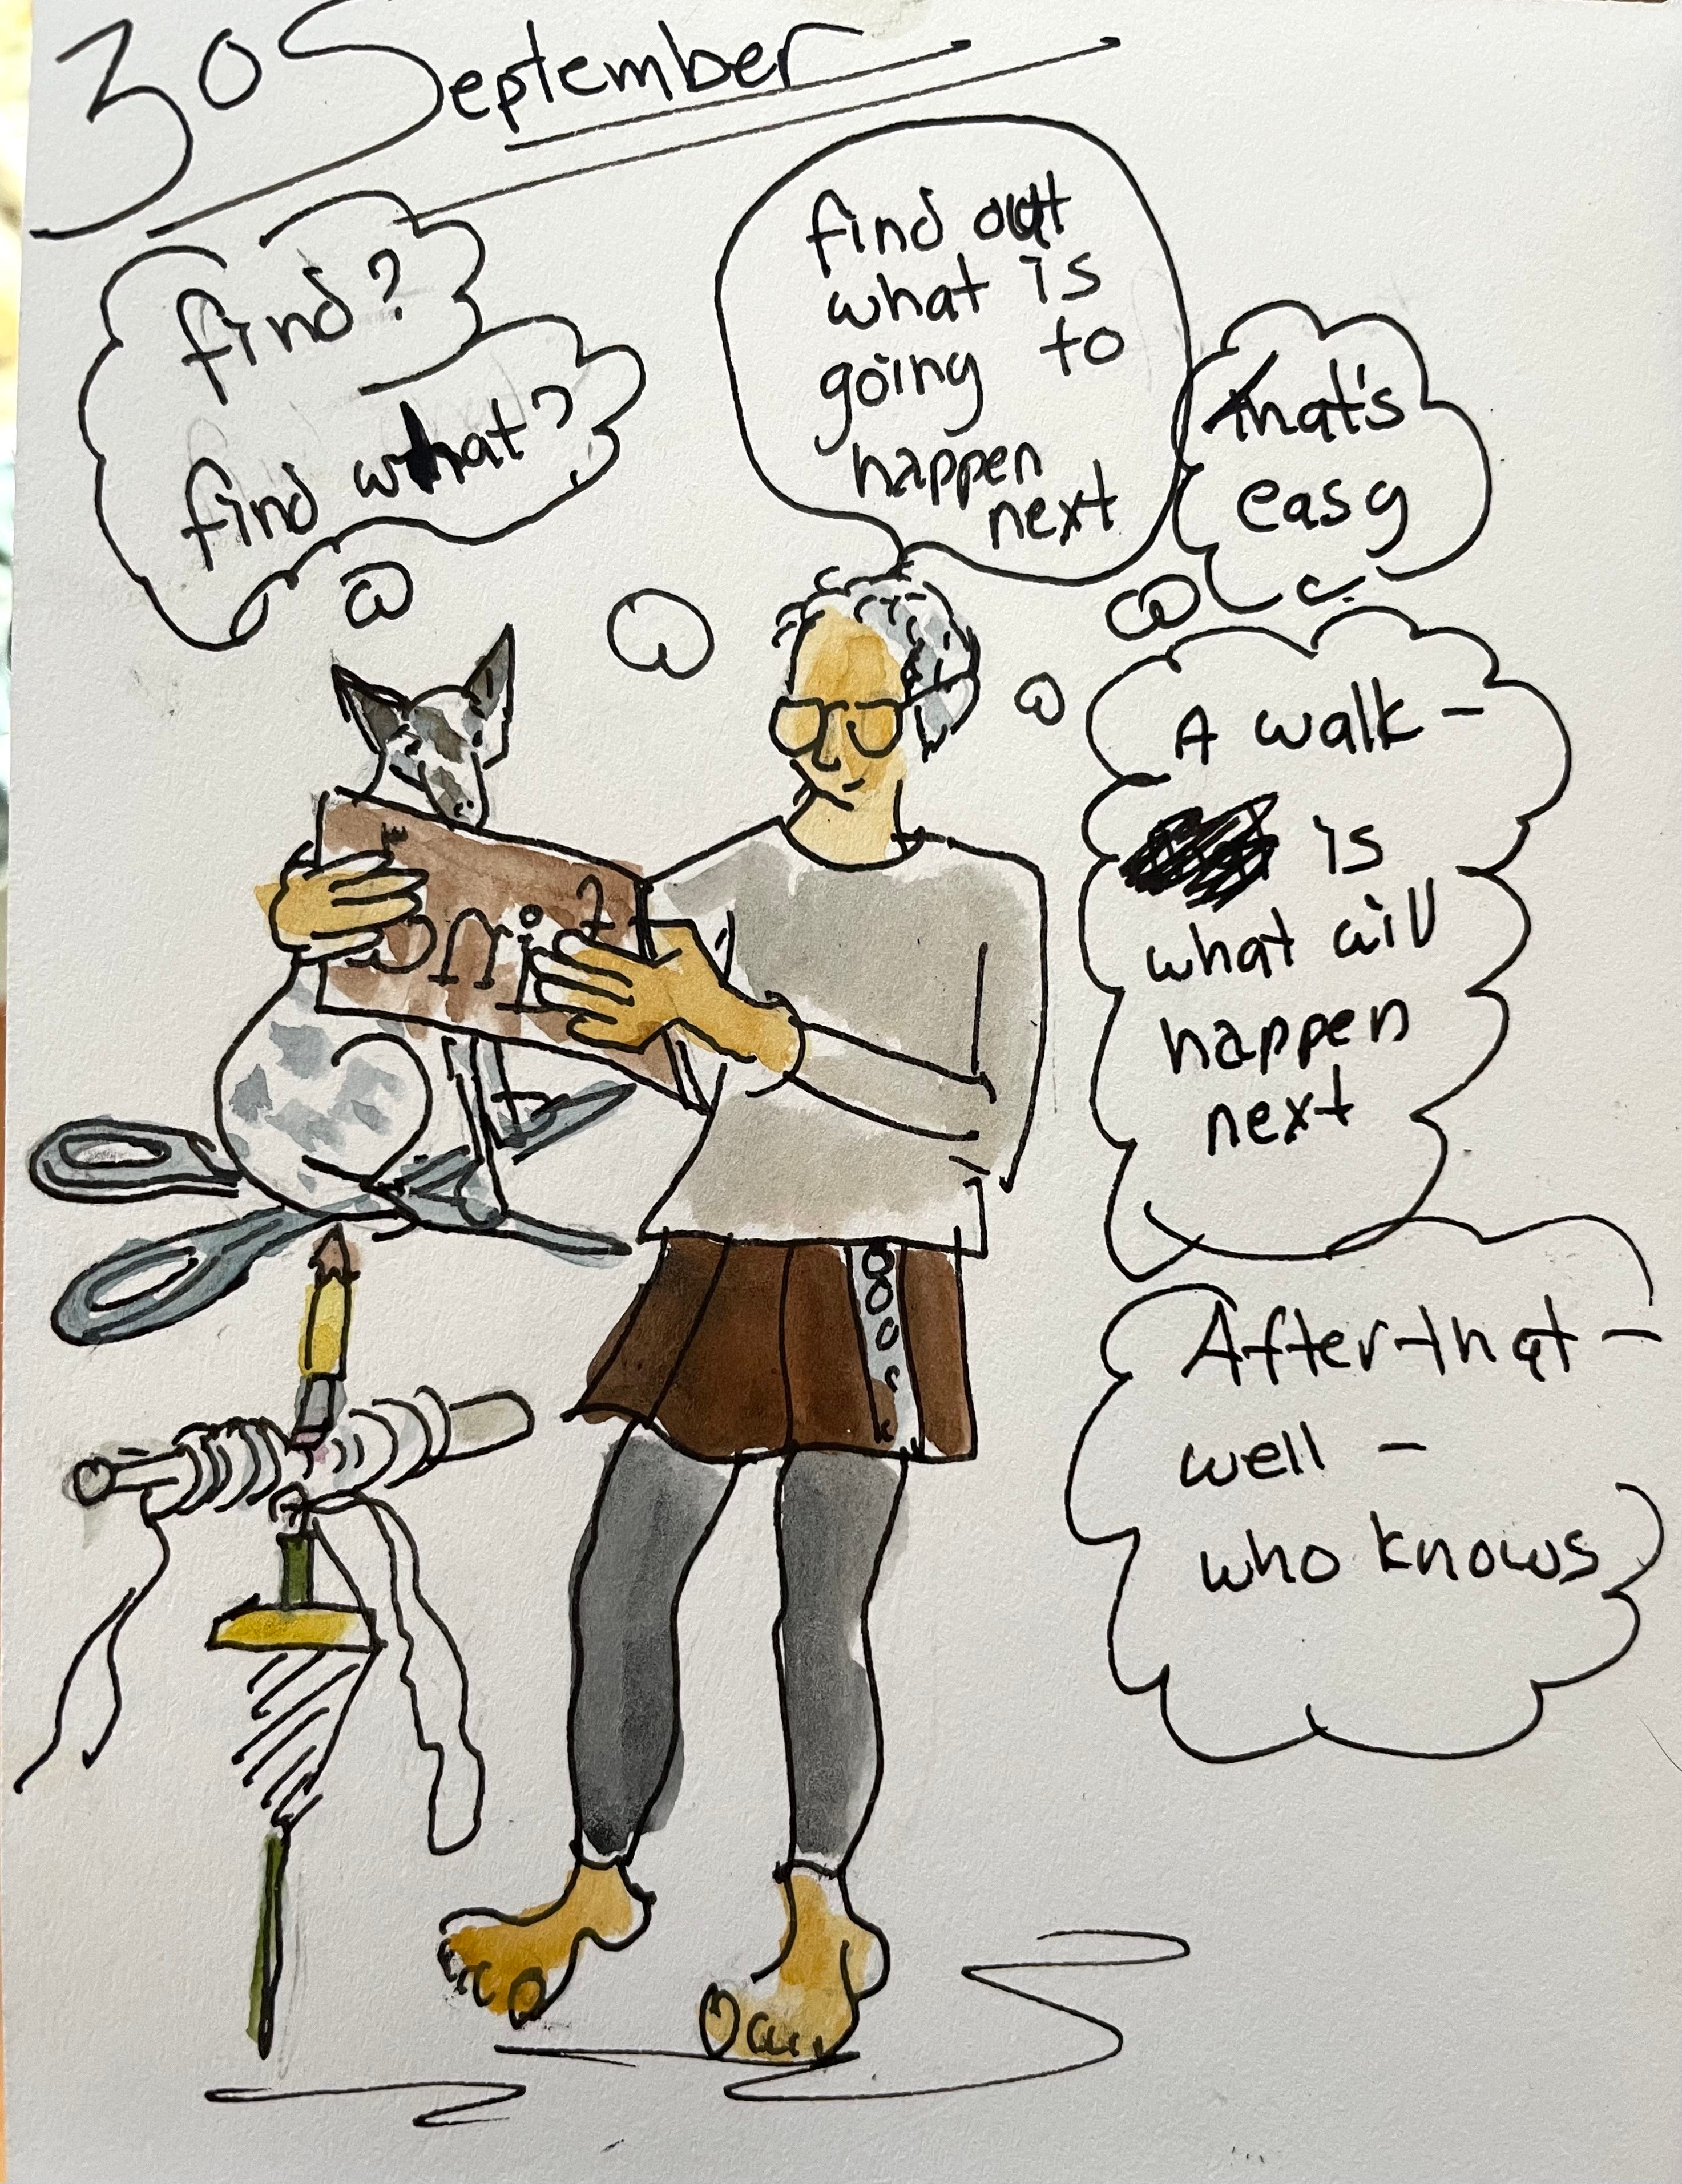 30 September
find?
find what?
find out
what is
going to
happen
next
that's
easy
A walk -
is
what will
happen
next
After that -
well -
who knows